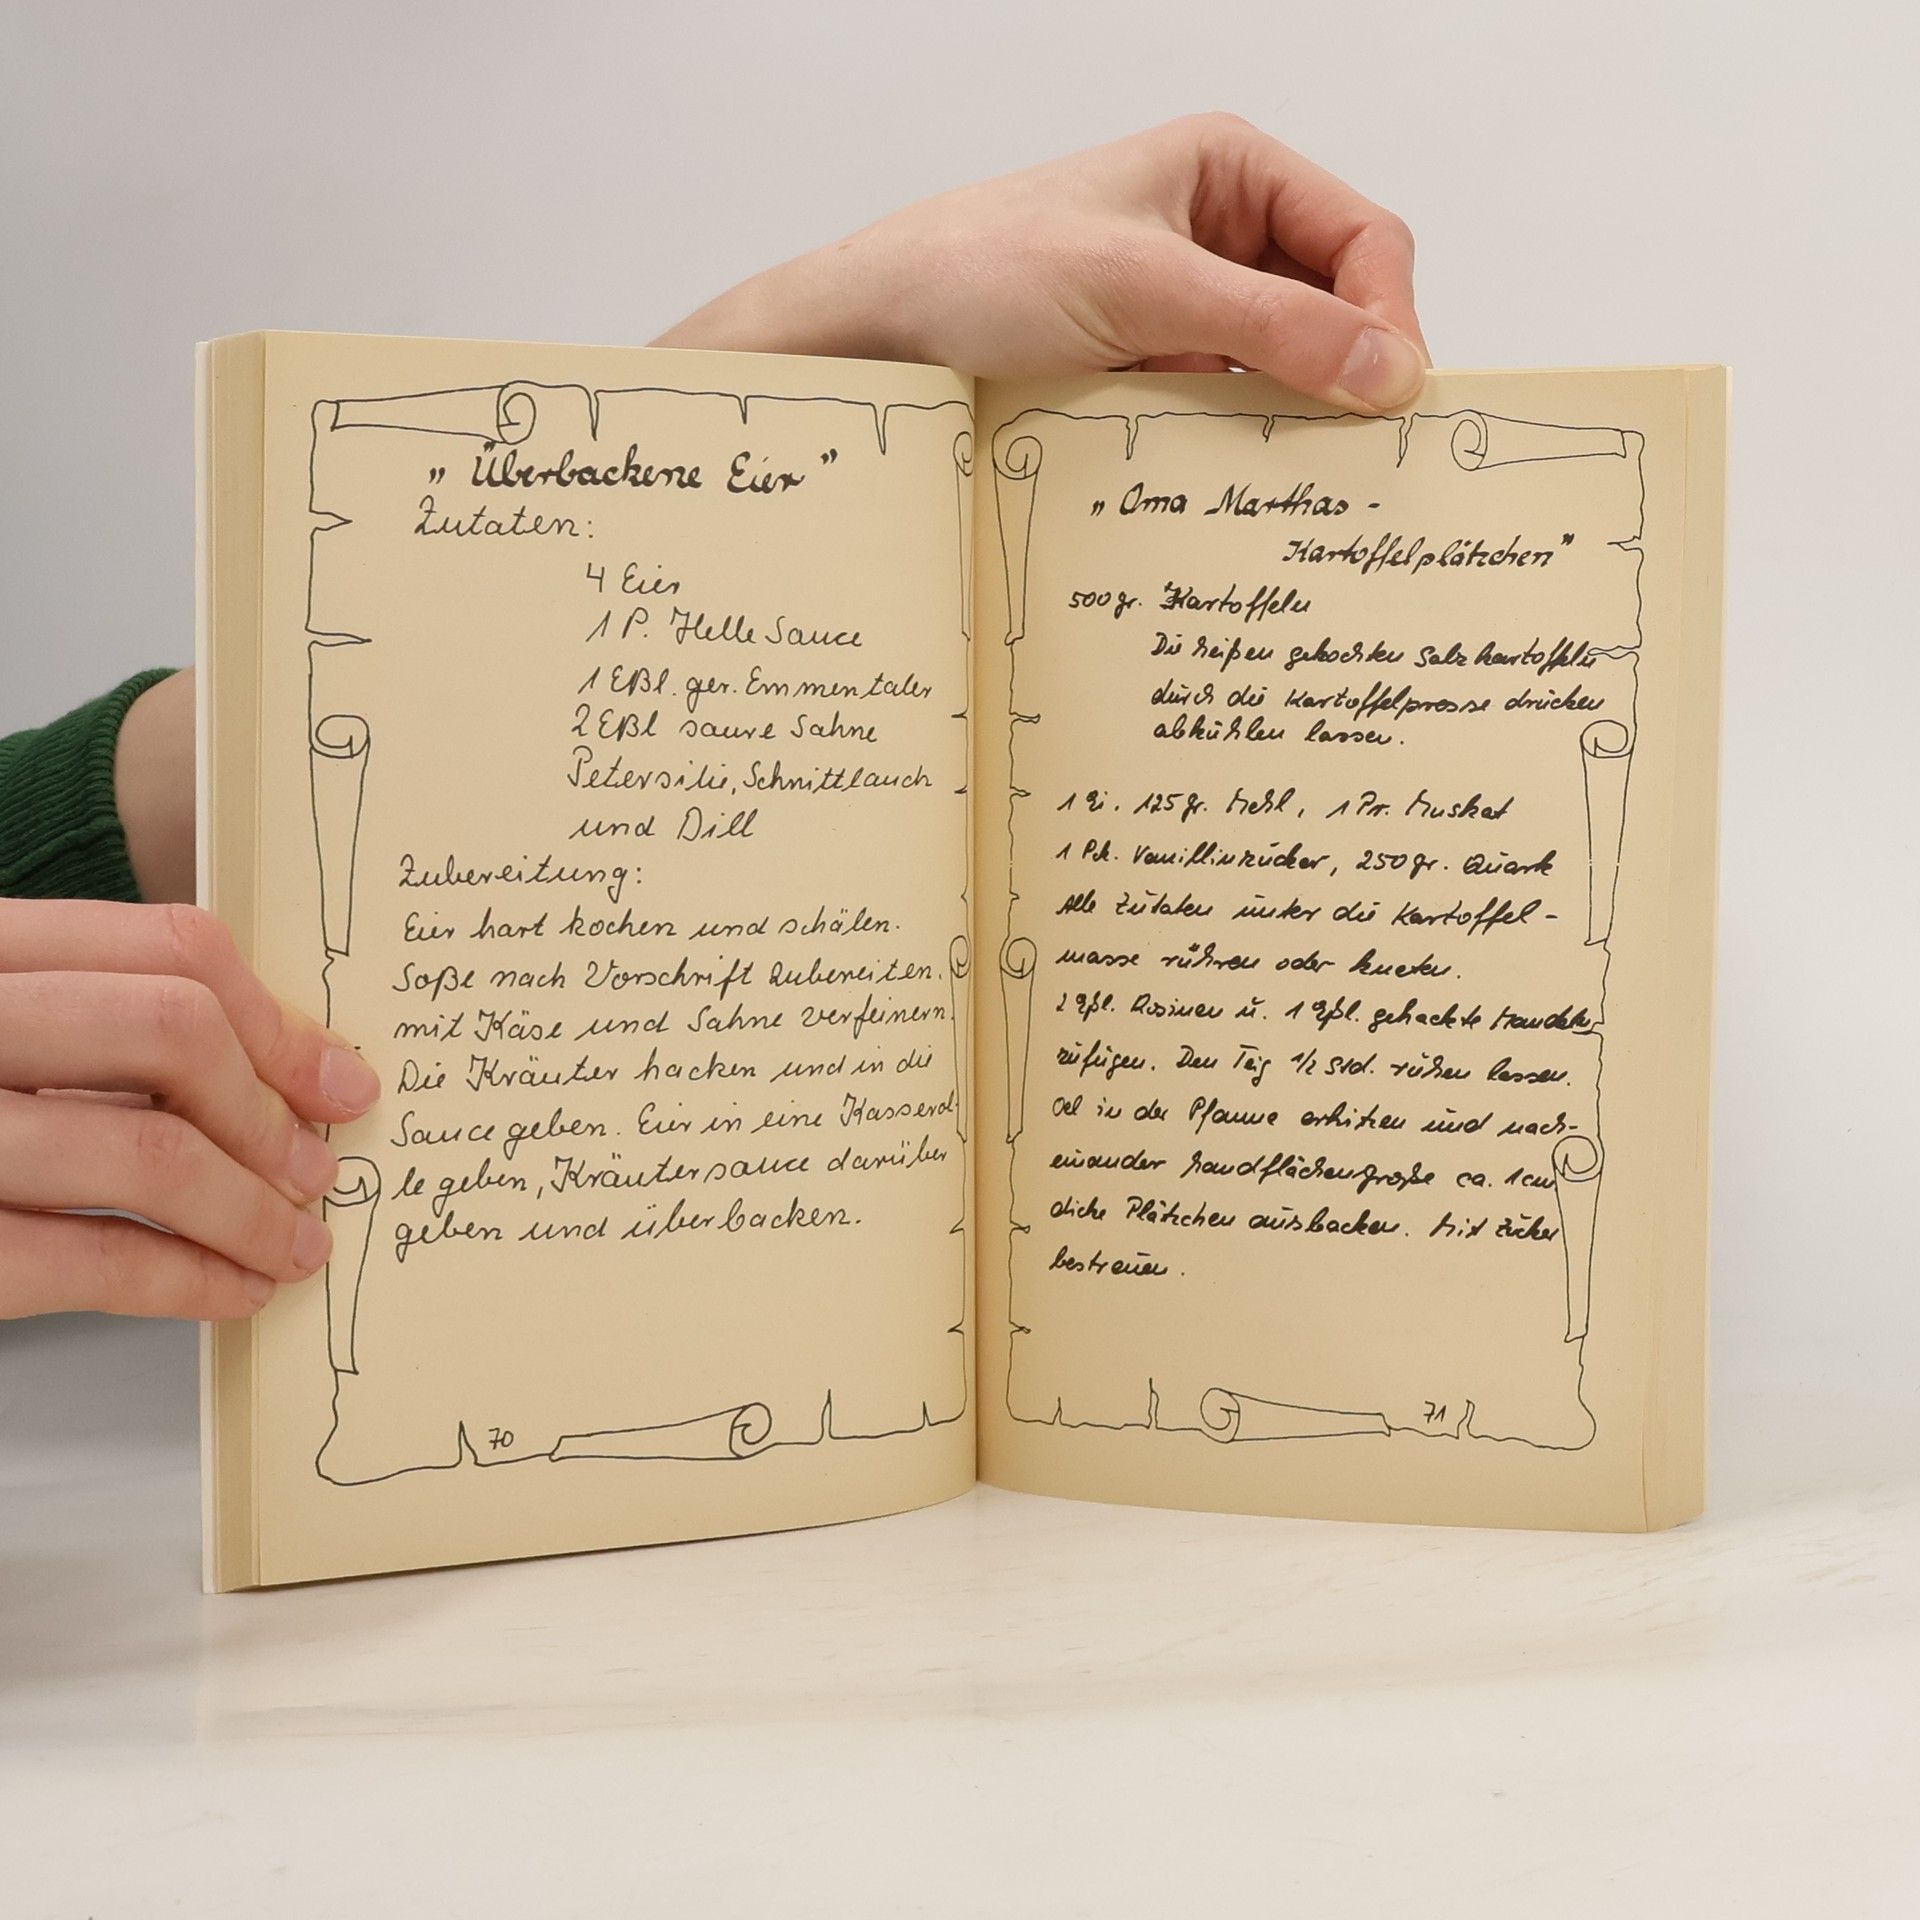 „Überbackene Eier”
Zutaten:
4 Eier
1 P. Helle Sauce
1 Eßl. ger. Emmentaler
2 Eßl saure Sahne
Petersilie, Schnittlauch
und Dill
Zubereitung:
Eier hart kochen und schälen.
Soße nach Vorschrift zubereiten.
mit Käse und Sahne verfeinern.
Die Kräuter hacken und in die
Sauce geben. Eier in eine Kasserol-
le geben, Kräutersauce darüber
geben und überbacken.
70
„Oma Marthas -
Kartoffelplätzchen”
500 gr. Kartoffeln
Die heißen gekochten Salzkartoffeln
durch die Kartoffelpresse drücken
abkühlen lassen.
1 Ei, 125 gr. Mehl, 1 Pr. Muskat
1 Pck. Vanillinzucker, 250 gr. Quark
Alle Zutaten unter die Kartoffel-
masse rühren oder kneten.
2 Eßl. Rosinen u. 1 Eßl. gehackte Mandeln
zufügen. Den Teig 1/2 Std. ruhen lassen.
Oel in der Pfanne erhitzen und nach-
einander handflächengroße ca. 1 cm
dicke Plätzchen ausbacken. Mit Zucker
bestreuen.
71